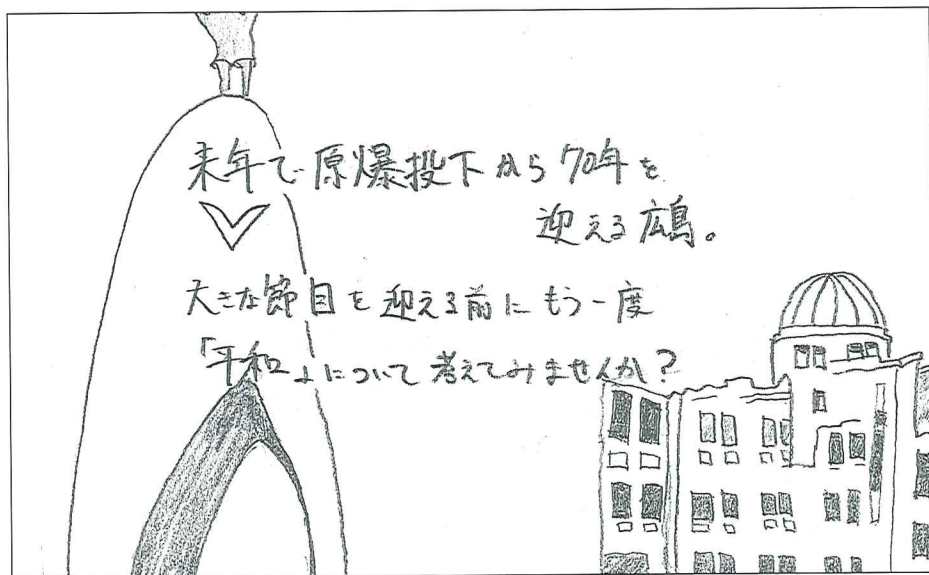 来年で原爆投下から70年を
迎える広島。
大きな節目を迎える前にもう一度
「平和」について考えてみませんか?